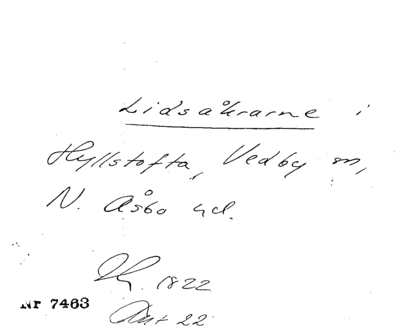 Lidsåkrarne i
Hyllstofta, Vedby sn,
N. Åsbo hd.
1822
Nr 7463
22